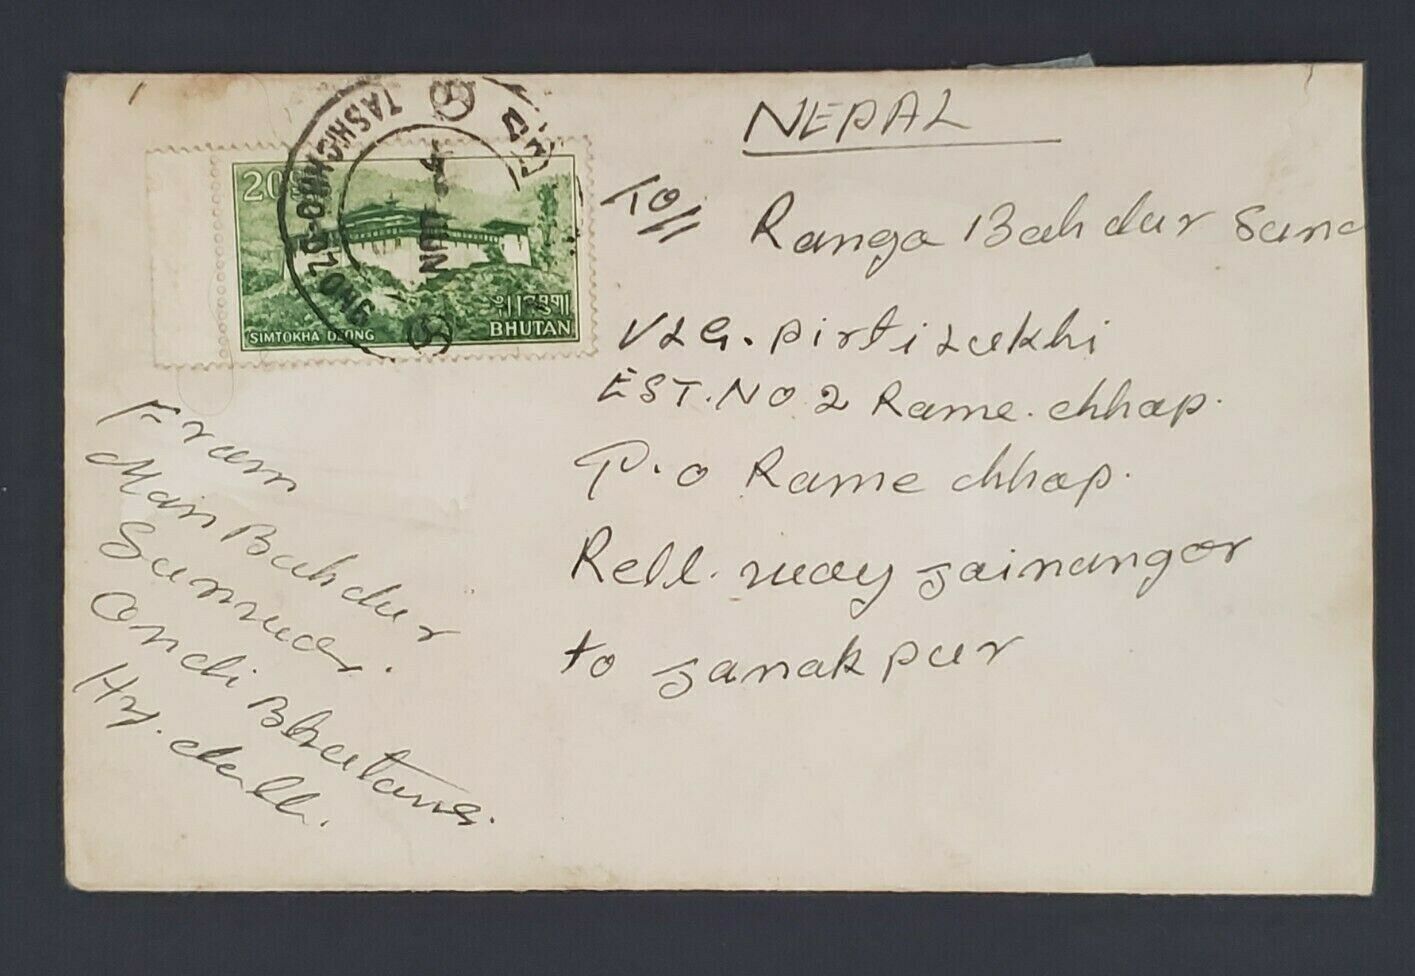 NEPAL
To//
Ranga Bahdur Sunc
VLG. Pirti Lukhi
EST. NO 2 Rame. chhap.
P.O Rame chhap.
Rell. way Jainangor
to Janakpur
20
SIMTOKHA DZONG
BHUTAN
TASHICHHO-DZONG
4 JUN
From
Man Bahdur
Sunwar.
Bhutan.